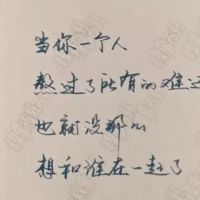 当你一个人
熬过了所有的难
也就没那么
想和谁在一起了